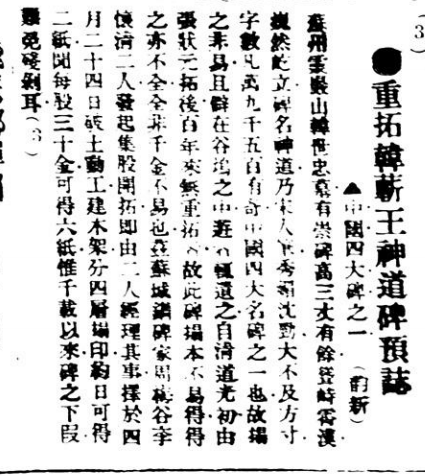 (3)
●重拓韓蘄王神道碑預誌
▲中國四大碑之一 (韵新)
蘇州靈巖山韓世忠墓有崇碑高三丈有餘豎峙霄漢
巍然屹立碑名神道乃宋人筆秀媚沈勁大不及方寸
字數凡萬九千五百有奇中國四大名碑之一也故搨
之非易且僻在谷塢之中遊人輒遺之自清道光初由
張狀元拓後百年來無重拓者故此碑搨本不易得得
之亦不全全非千金不易也茲蘇城鐫碑家周梅谷李
懷清二人發起集股開拓即由二人經理其事擇於四
月二十四日破土動工建木架分四層搨印約日可得
二紙聞每股三十金可得六紙惟千載以來碑之下段
免殘剝耳(3)